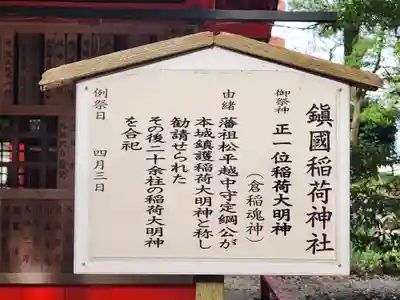 鎮國稲荷神社
御祭神 正一位稲荷大明神
（倉稲魂神）
由緒 藩祖松平越中守定綱公が
本城鎮護稲荷大明神と称し
勧請せられた
その後二十余柱の稲荷大明神
を合祀
例祭日 四月三日